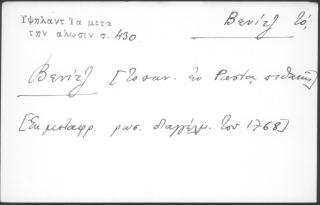 Ὑψηλαντ Τα μετα
την αλωσιν σ. 430
Βενίτζ τό,
Βενίτζ [Τοπων. ἐν Ρωσίᾳ
[Ἐκ μεταφρ. ρωσ. διαγγέλμ. του 1768]